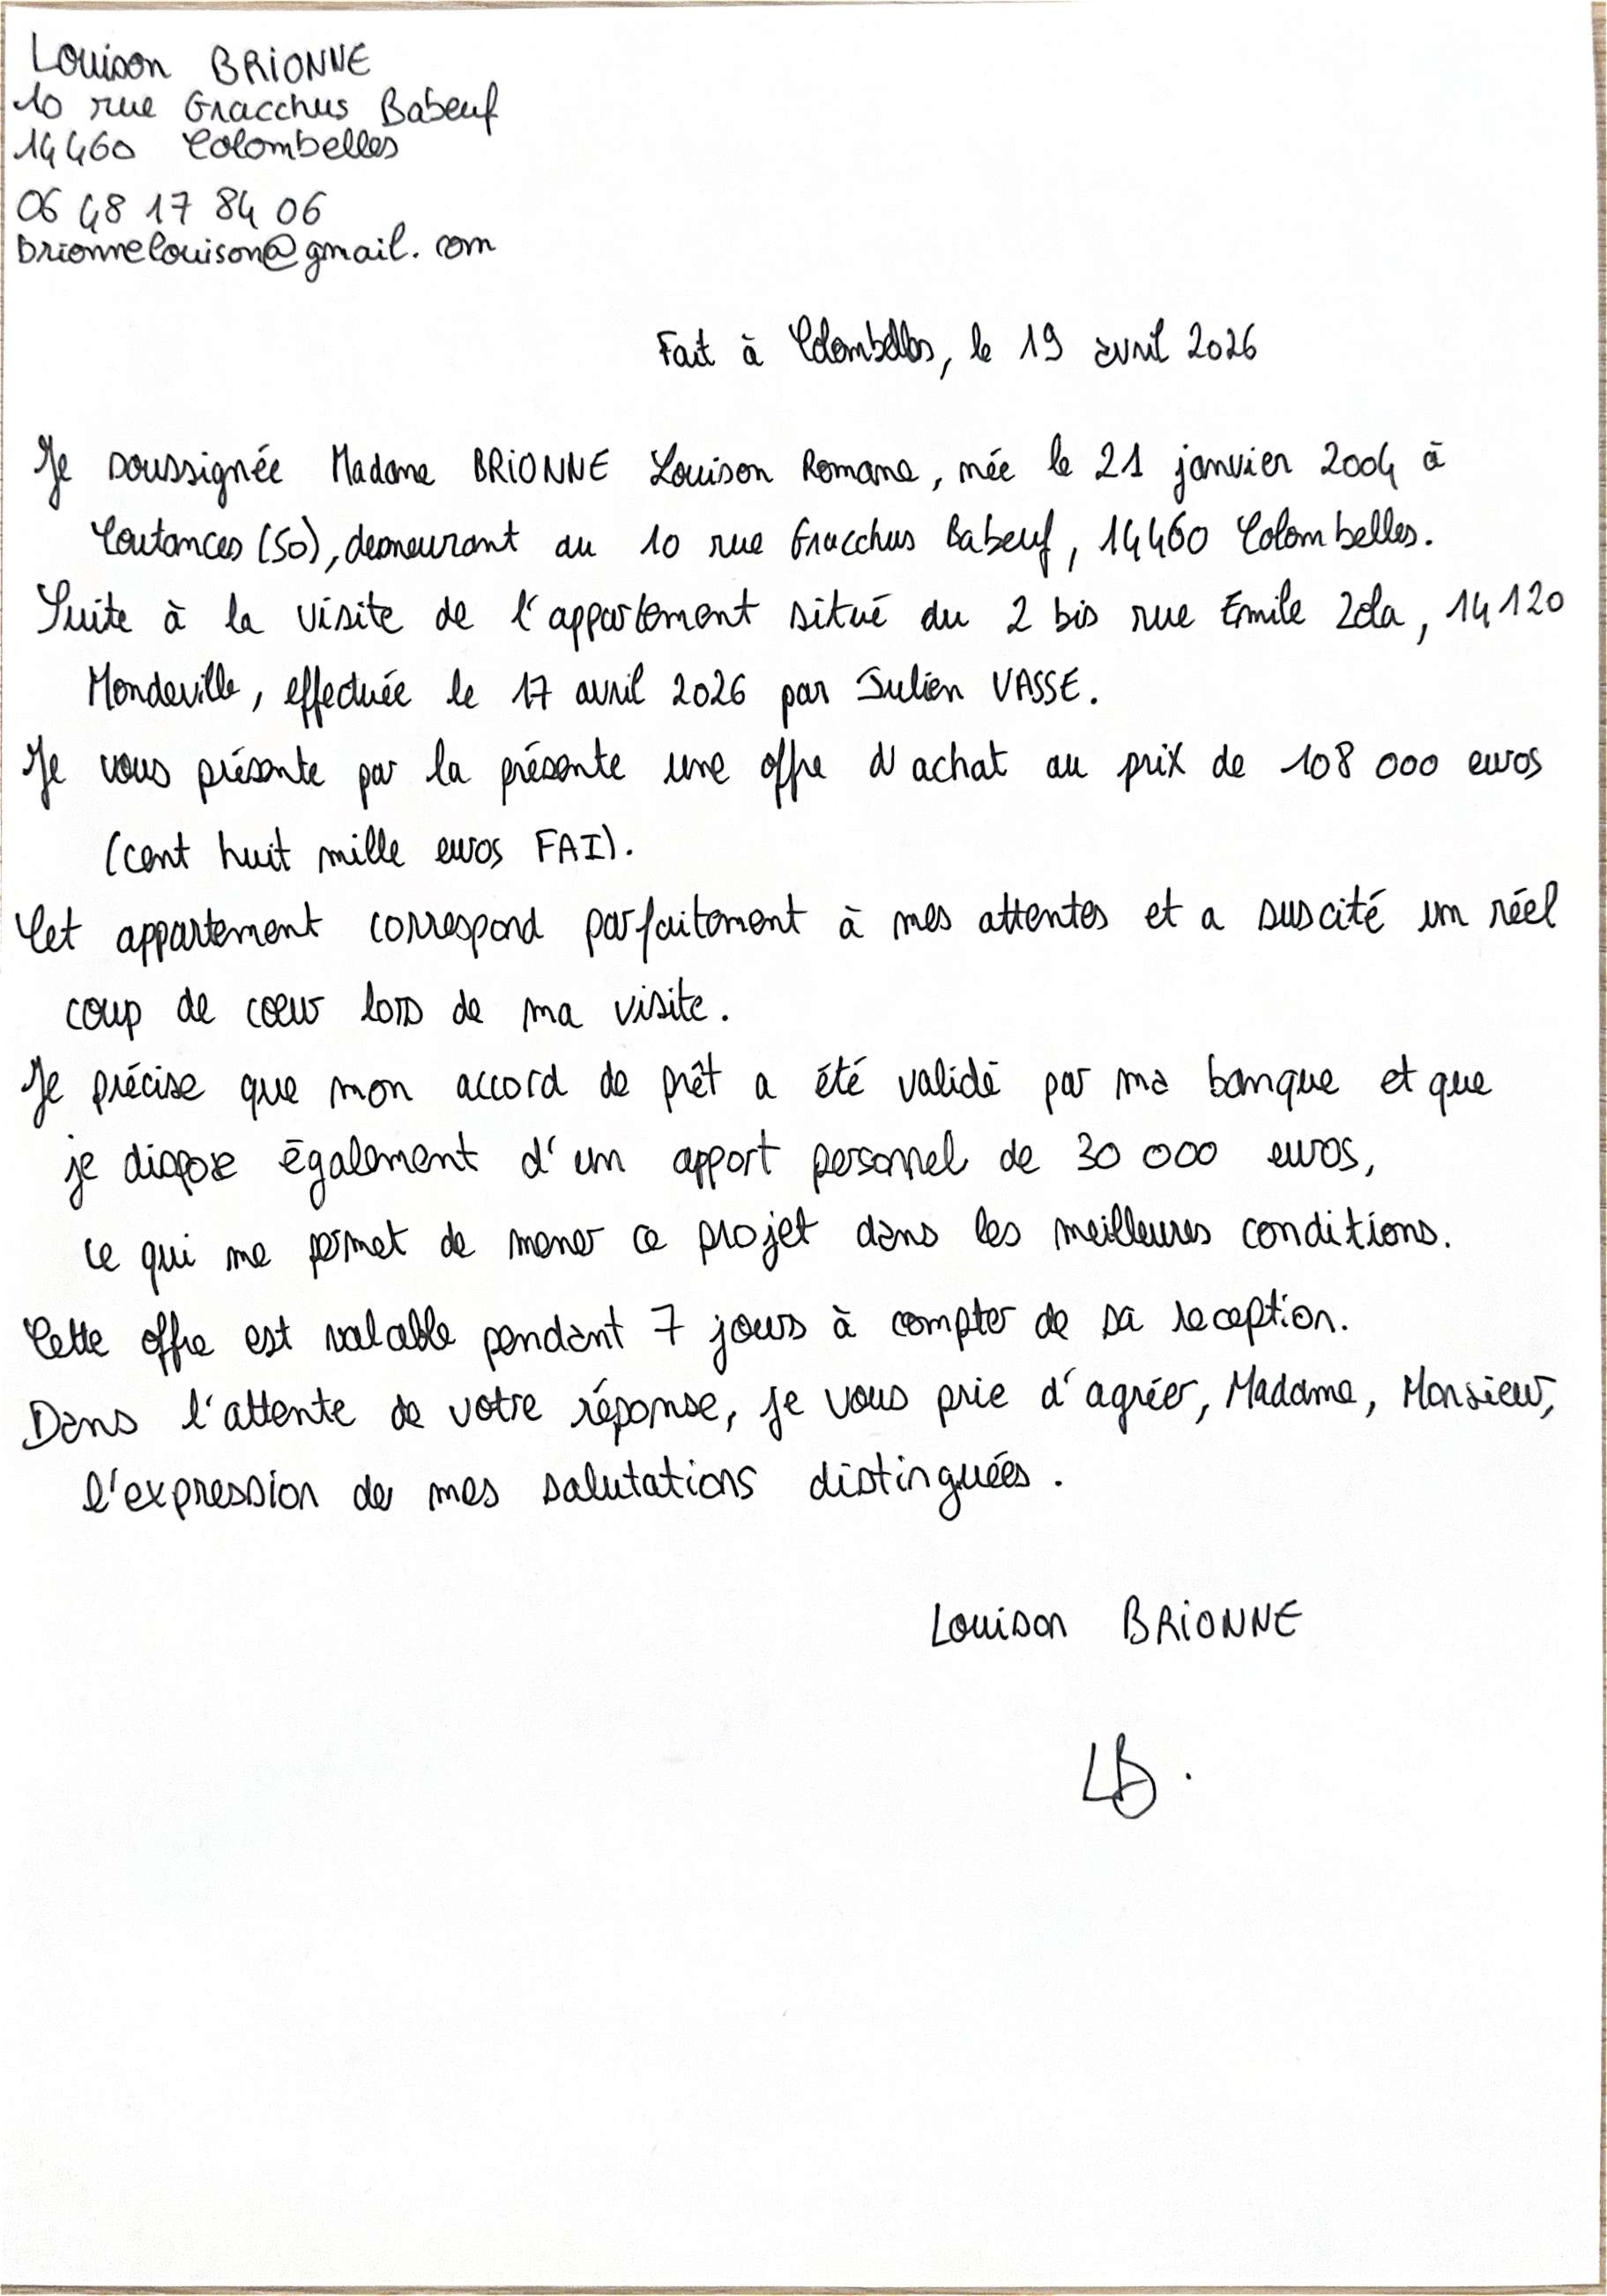 Louison BRIONNE
10 rue Gracchus Babeuf
14460 Colombelles
06 48 17 84 06
brionnelouison@gmail.com
Fait à Colombelles, le 19 avril 2026
Je soussignée Madame BRIONNE Louison Romane, née le 21 janvier 2004 à
Coutances (50), demeurant au 10 rue Gracchus Babeuf, 14460 Colombelles.
Suite à la visite de l'appartement situé du 2 bis rue Emile Zola, 14120
Mondeville, effectuée le 17 avril 2026 par Julien VASSE.
Je vous présente par la présente une offre d'achat au prix de 108 000 euros
(cent huit mille euros FAI).
Cet appartement correspond parfaitement à mes attentes et a suscité un réel
coup de cœur lors de ma visite.
Je précise que mon accord de prêt a été validé par ma banque et que
je dispose également d'un apport personnel de 30 000 euros,
ce qui me permet de mener ce projet dans les meilleures conditions.
Cette offre est valable pendant 7 jours à compter de sa reception.
Dans l'attente de votre réponse, je vous prie d'agréer, Madame, Monsieur,
l'expression de mes salutations distinguées.
Louison BRIONNE
LB.